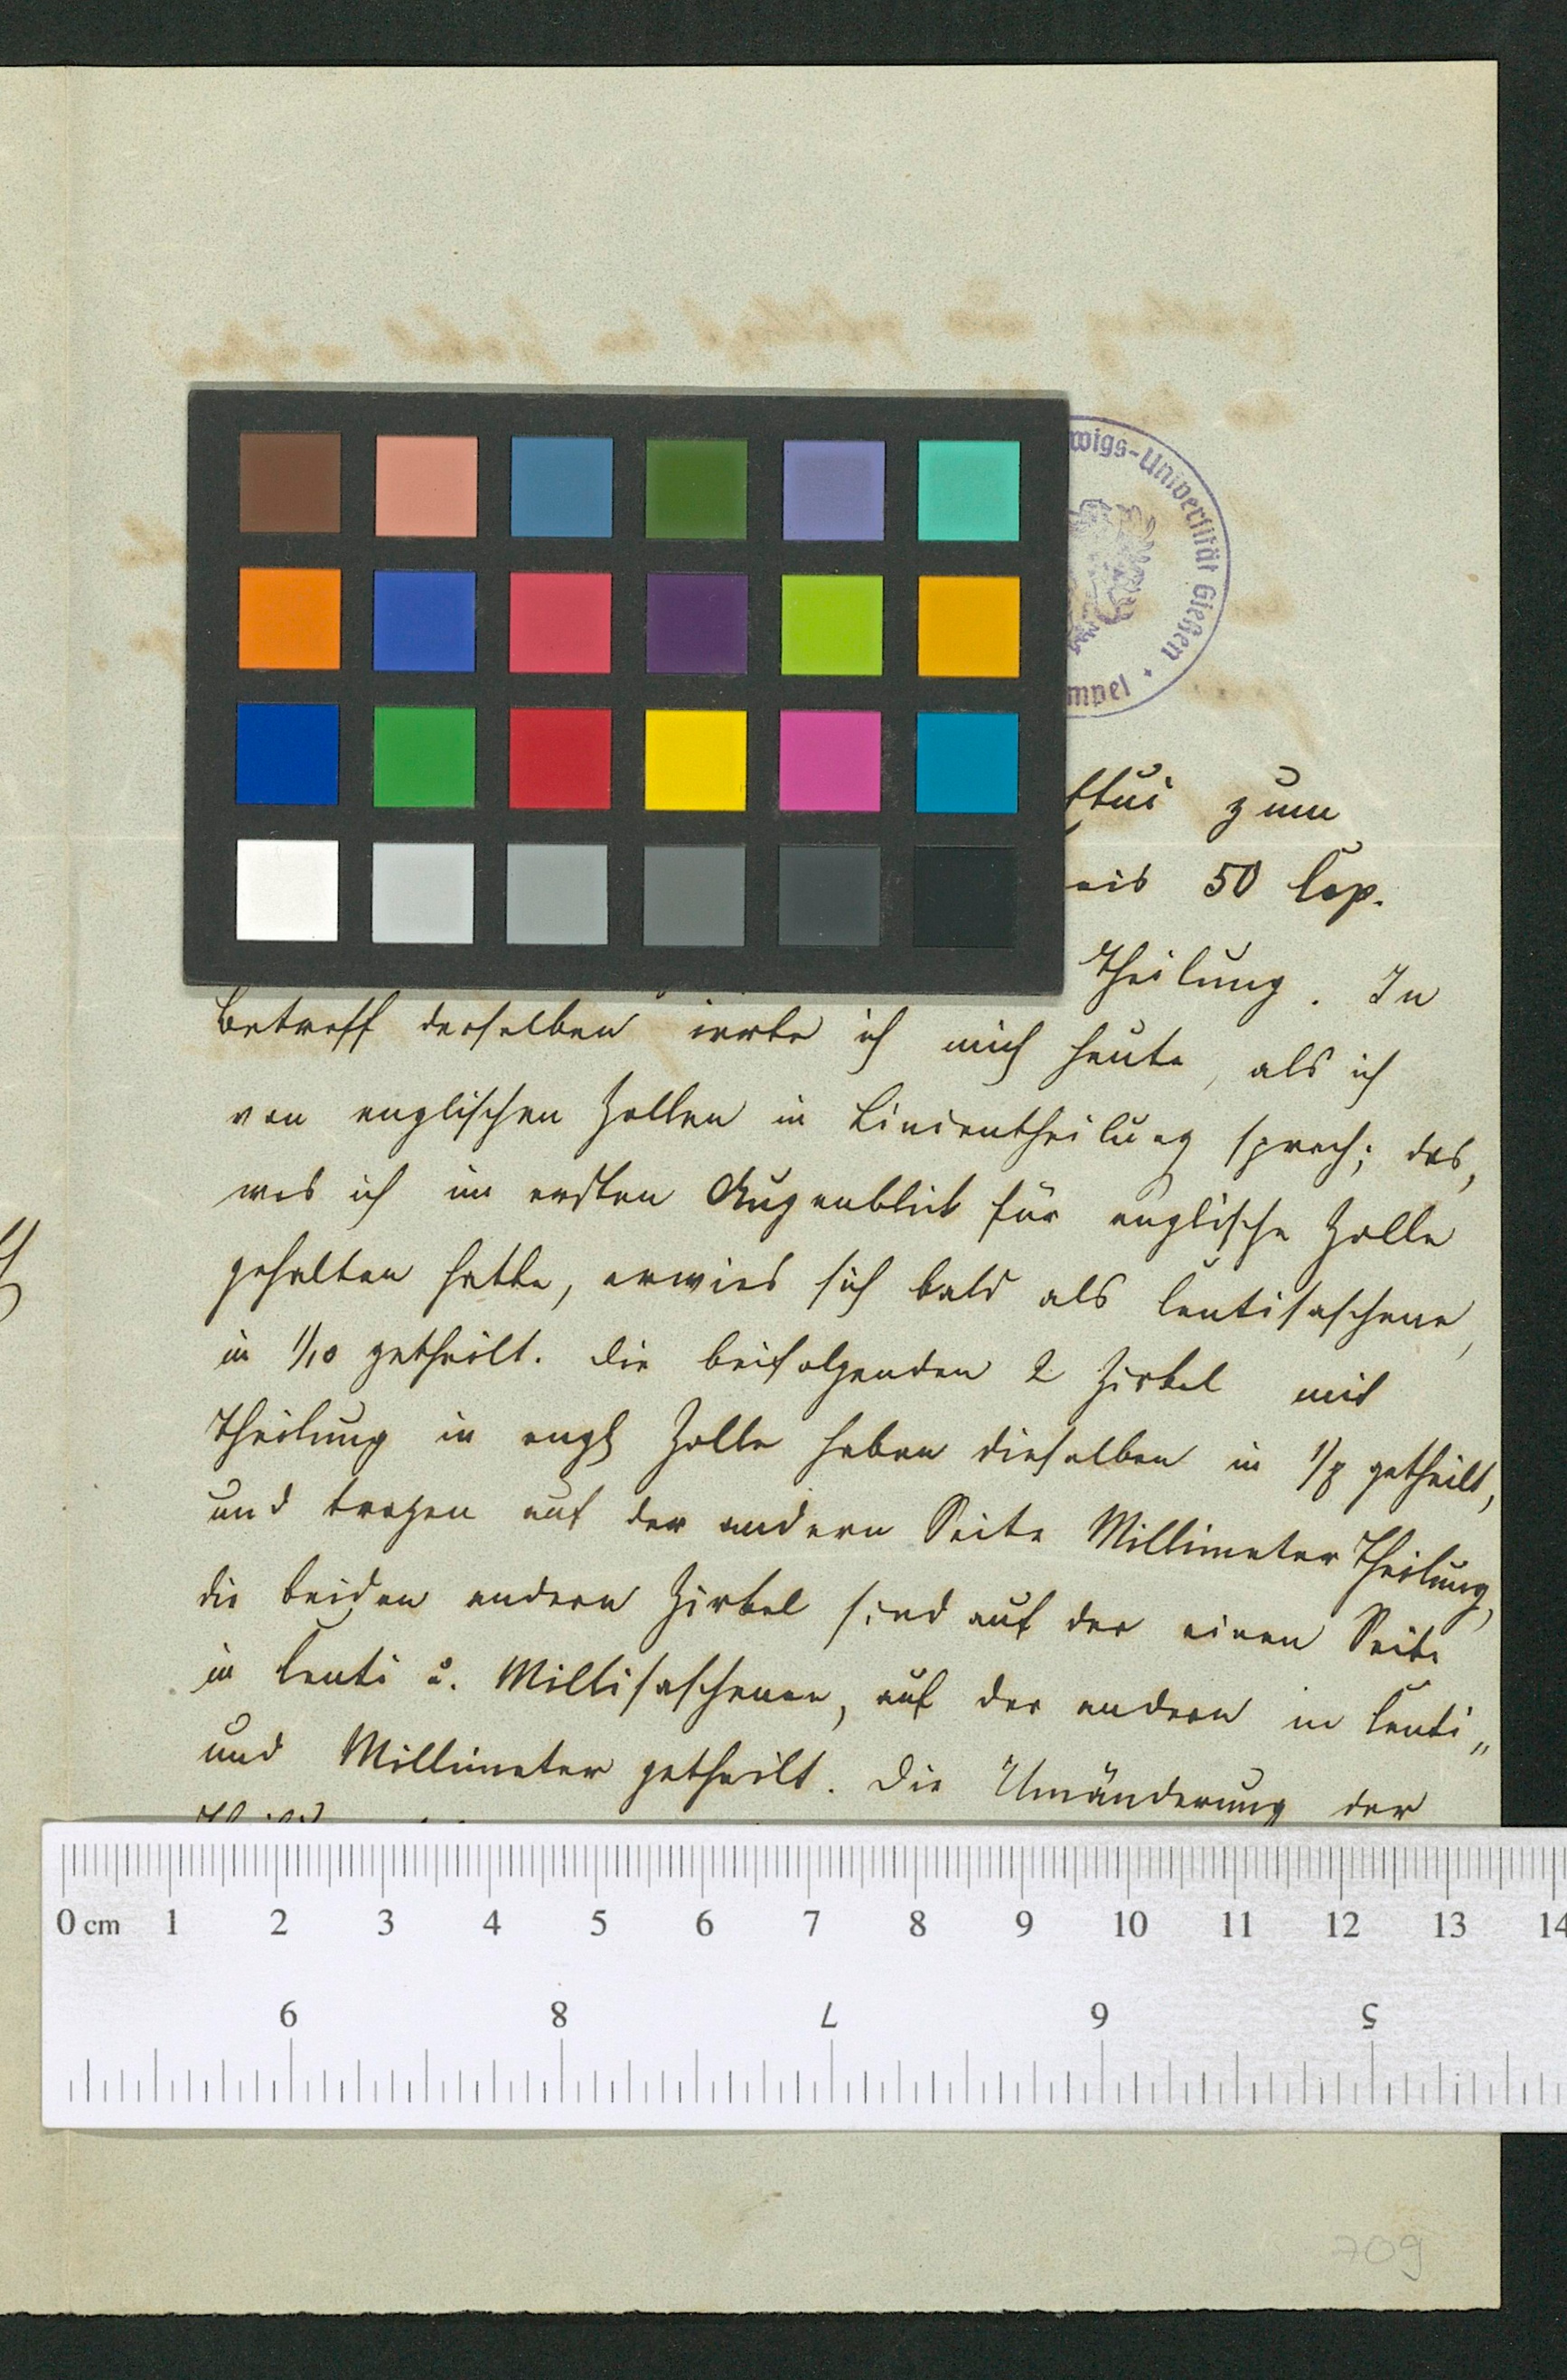 wigs-Universität Gießen
mpel
ttui zum
eis 50 Cop.
Theilung. In
Betreff derselben irrte ich mich heute, als ich
von englischen Zollen in Linientheilung sprach; das,
was ich im ersten Augenblick für englische Zolle
gehalten hatte, erwies sich bald als Centisaschene,
in 1/10 getheilt. Die beifolgenden 2 Zirkel mit
Theilung in engl Zolle haben dieselben in 1/8 getheilt,
und tragen auf der andern Seite Millimeter Theilung,
die beiden andern Zirkel sind auf der einen Seite
in Centi u. Millisaschenen, auf der andern in Centi„
und Millimeter getheilt. Die Umänderung der
0 cm 1 2 3 4 5 6 7 8 9 10 11 12 13 14
9 8 7 6 5
709